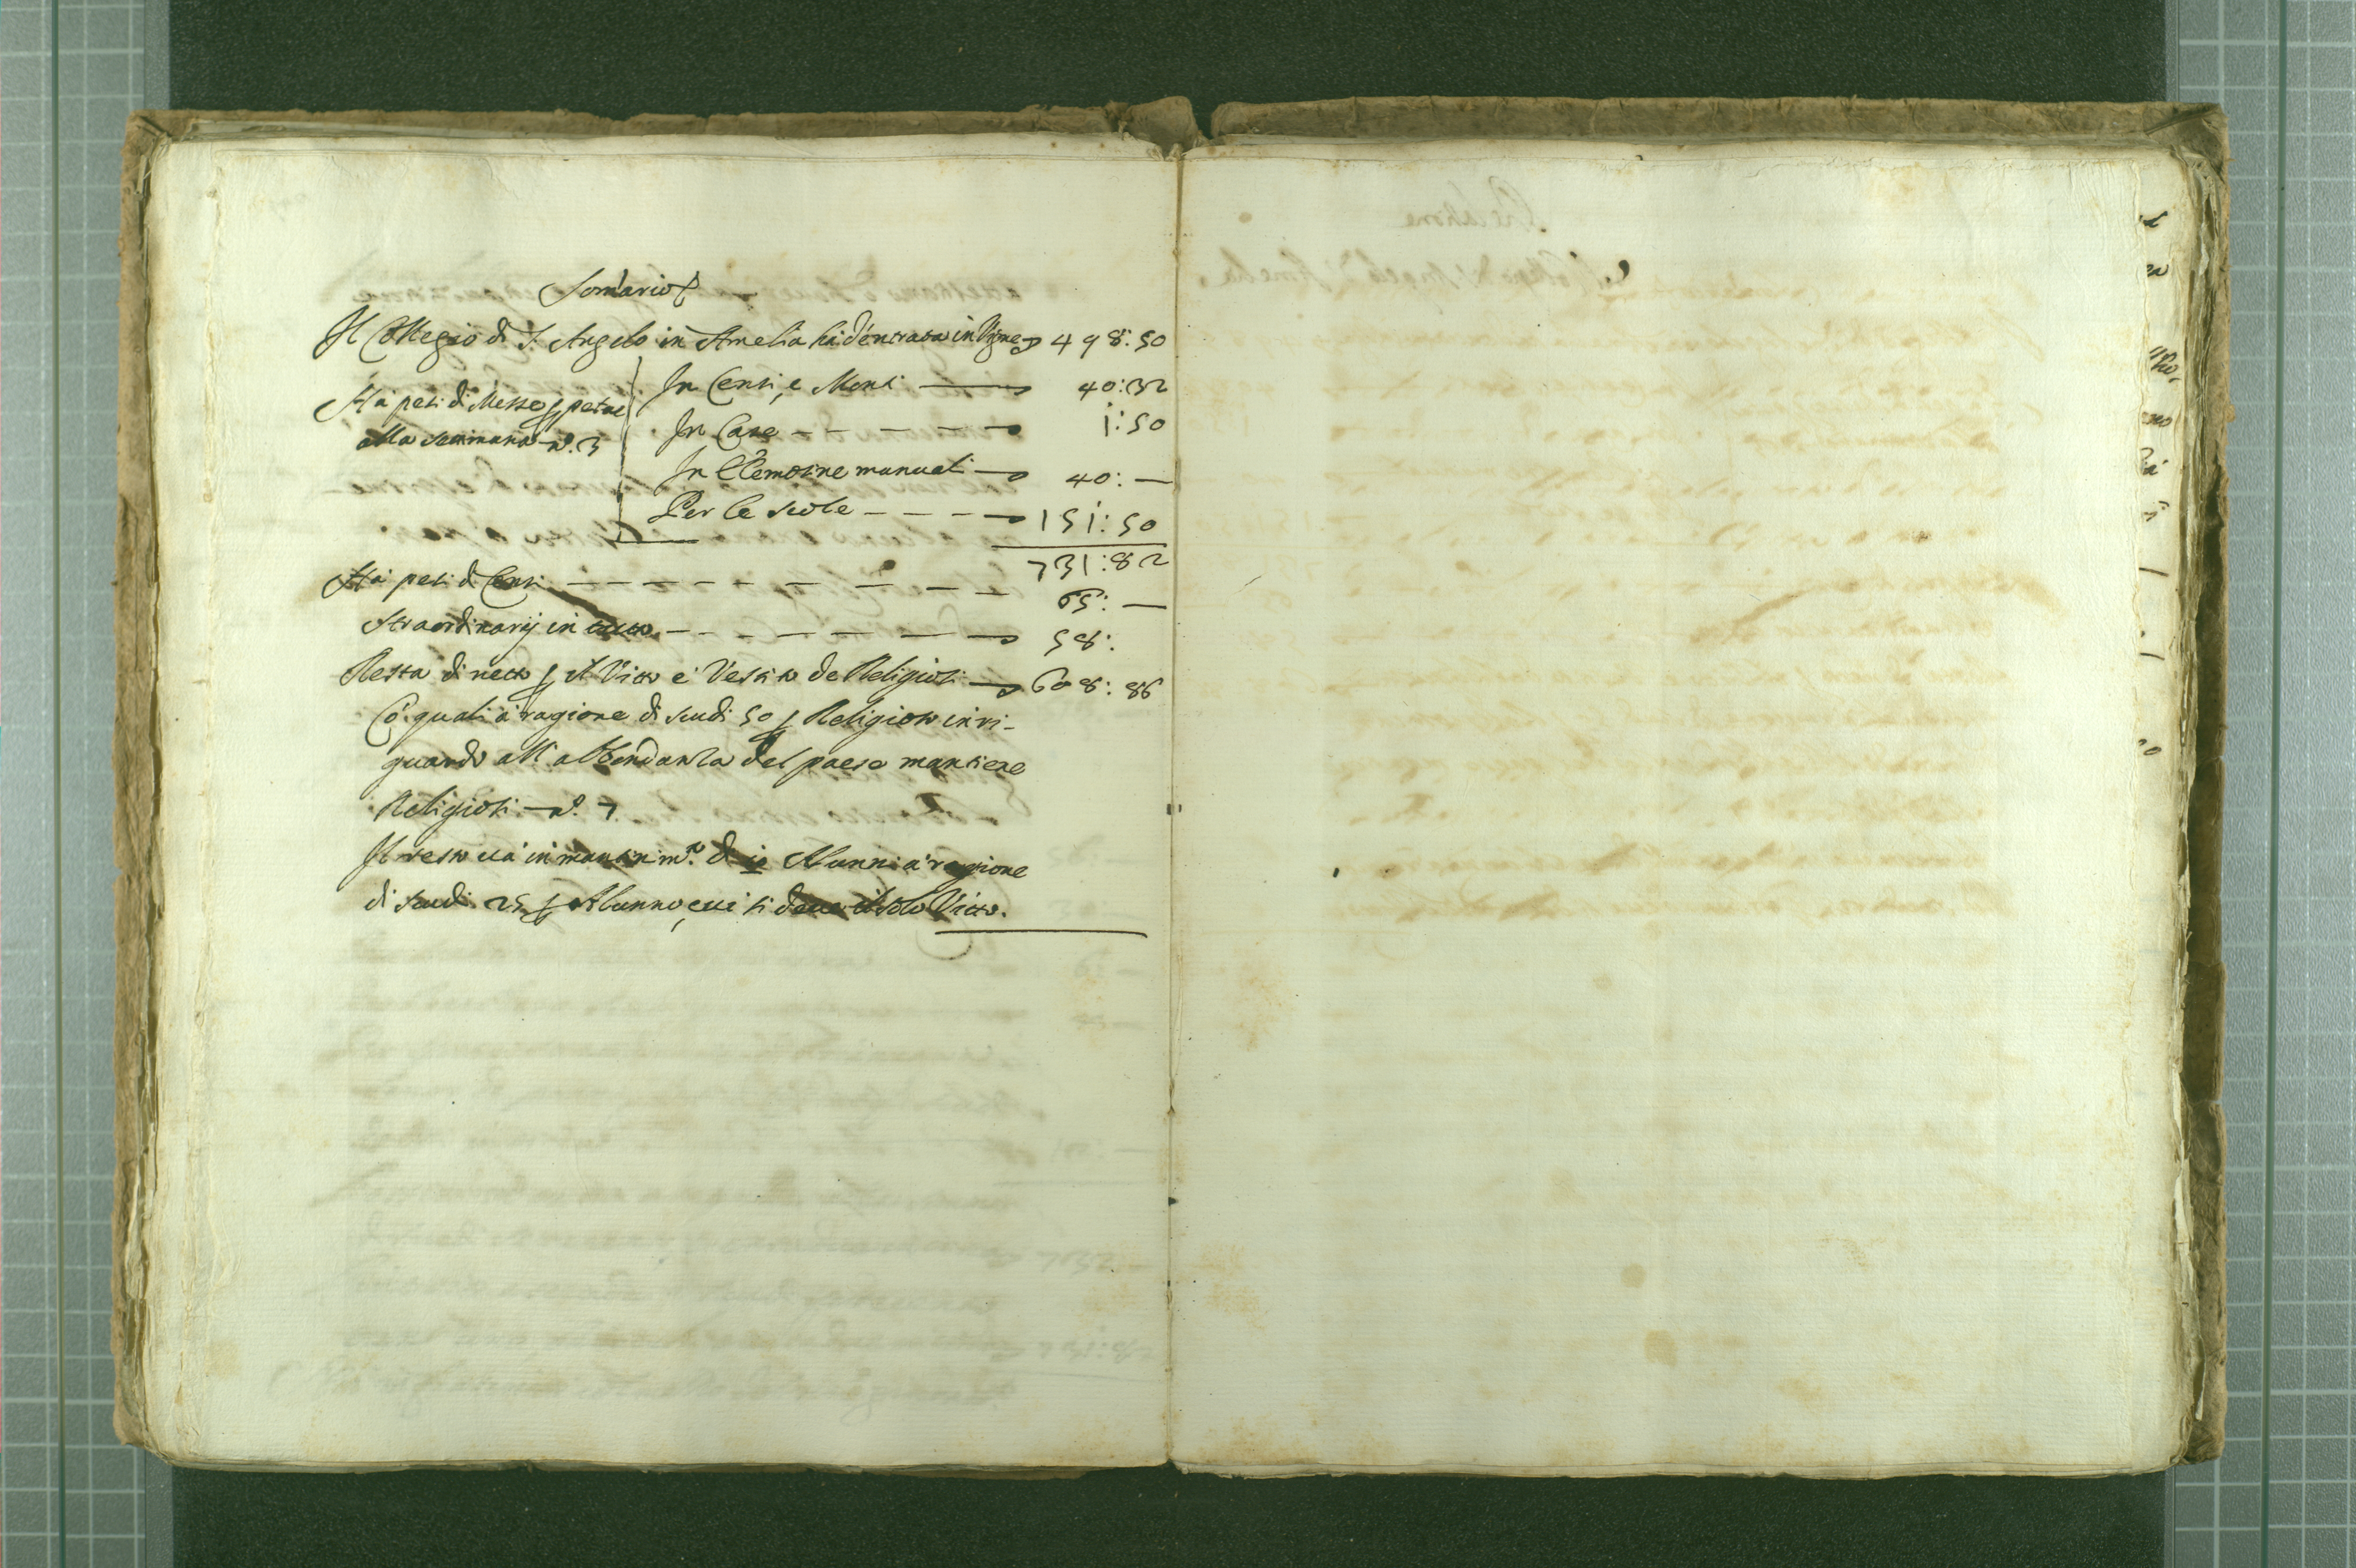 Som̃ario
Il Collegio di S. Angelo in Amelia hà d'entrata in Vigne 498:50
In Censi, e Monti 40:32
Hà pesi di Messe ꝑpetue
In Case 1:50
alla settimana nº. 3
In Elemosine manuali 40:—
Per le scole 151:50
731:82
Hà pesi di Censi 65:—
Straordinarij in tutto 58:
Resta di netto ꝑ il Vitto e Vestito de Religiosi 608:86
Cõ quali à ragione di scudi 50 ꝑ Religioso in ri-
guardo all'abbondanza del paese mantiene
Religiosi nº. 7
Il resto và in mantenim.to di 10 Alunni à ragione
di scudi 25 ꝑ Alunno, cui si deve il solo Vitto.